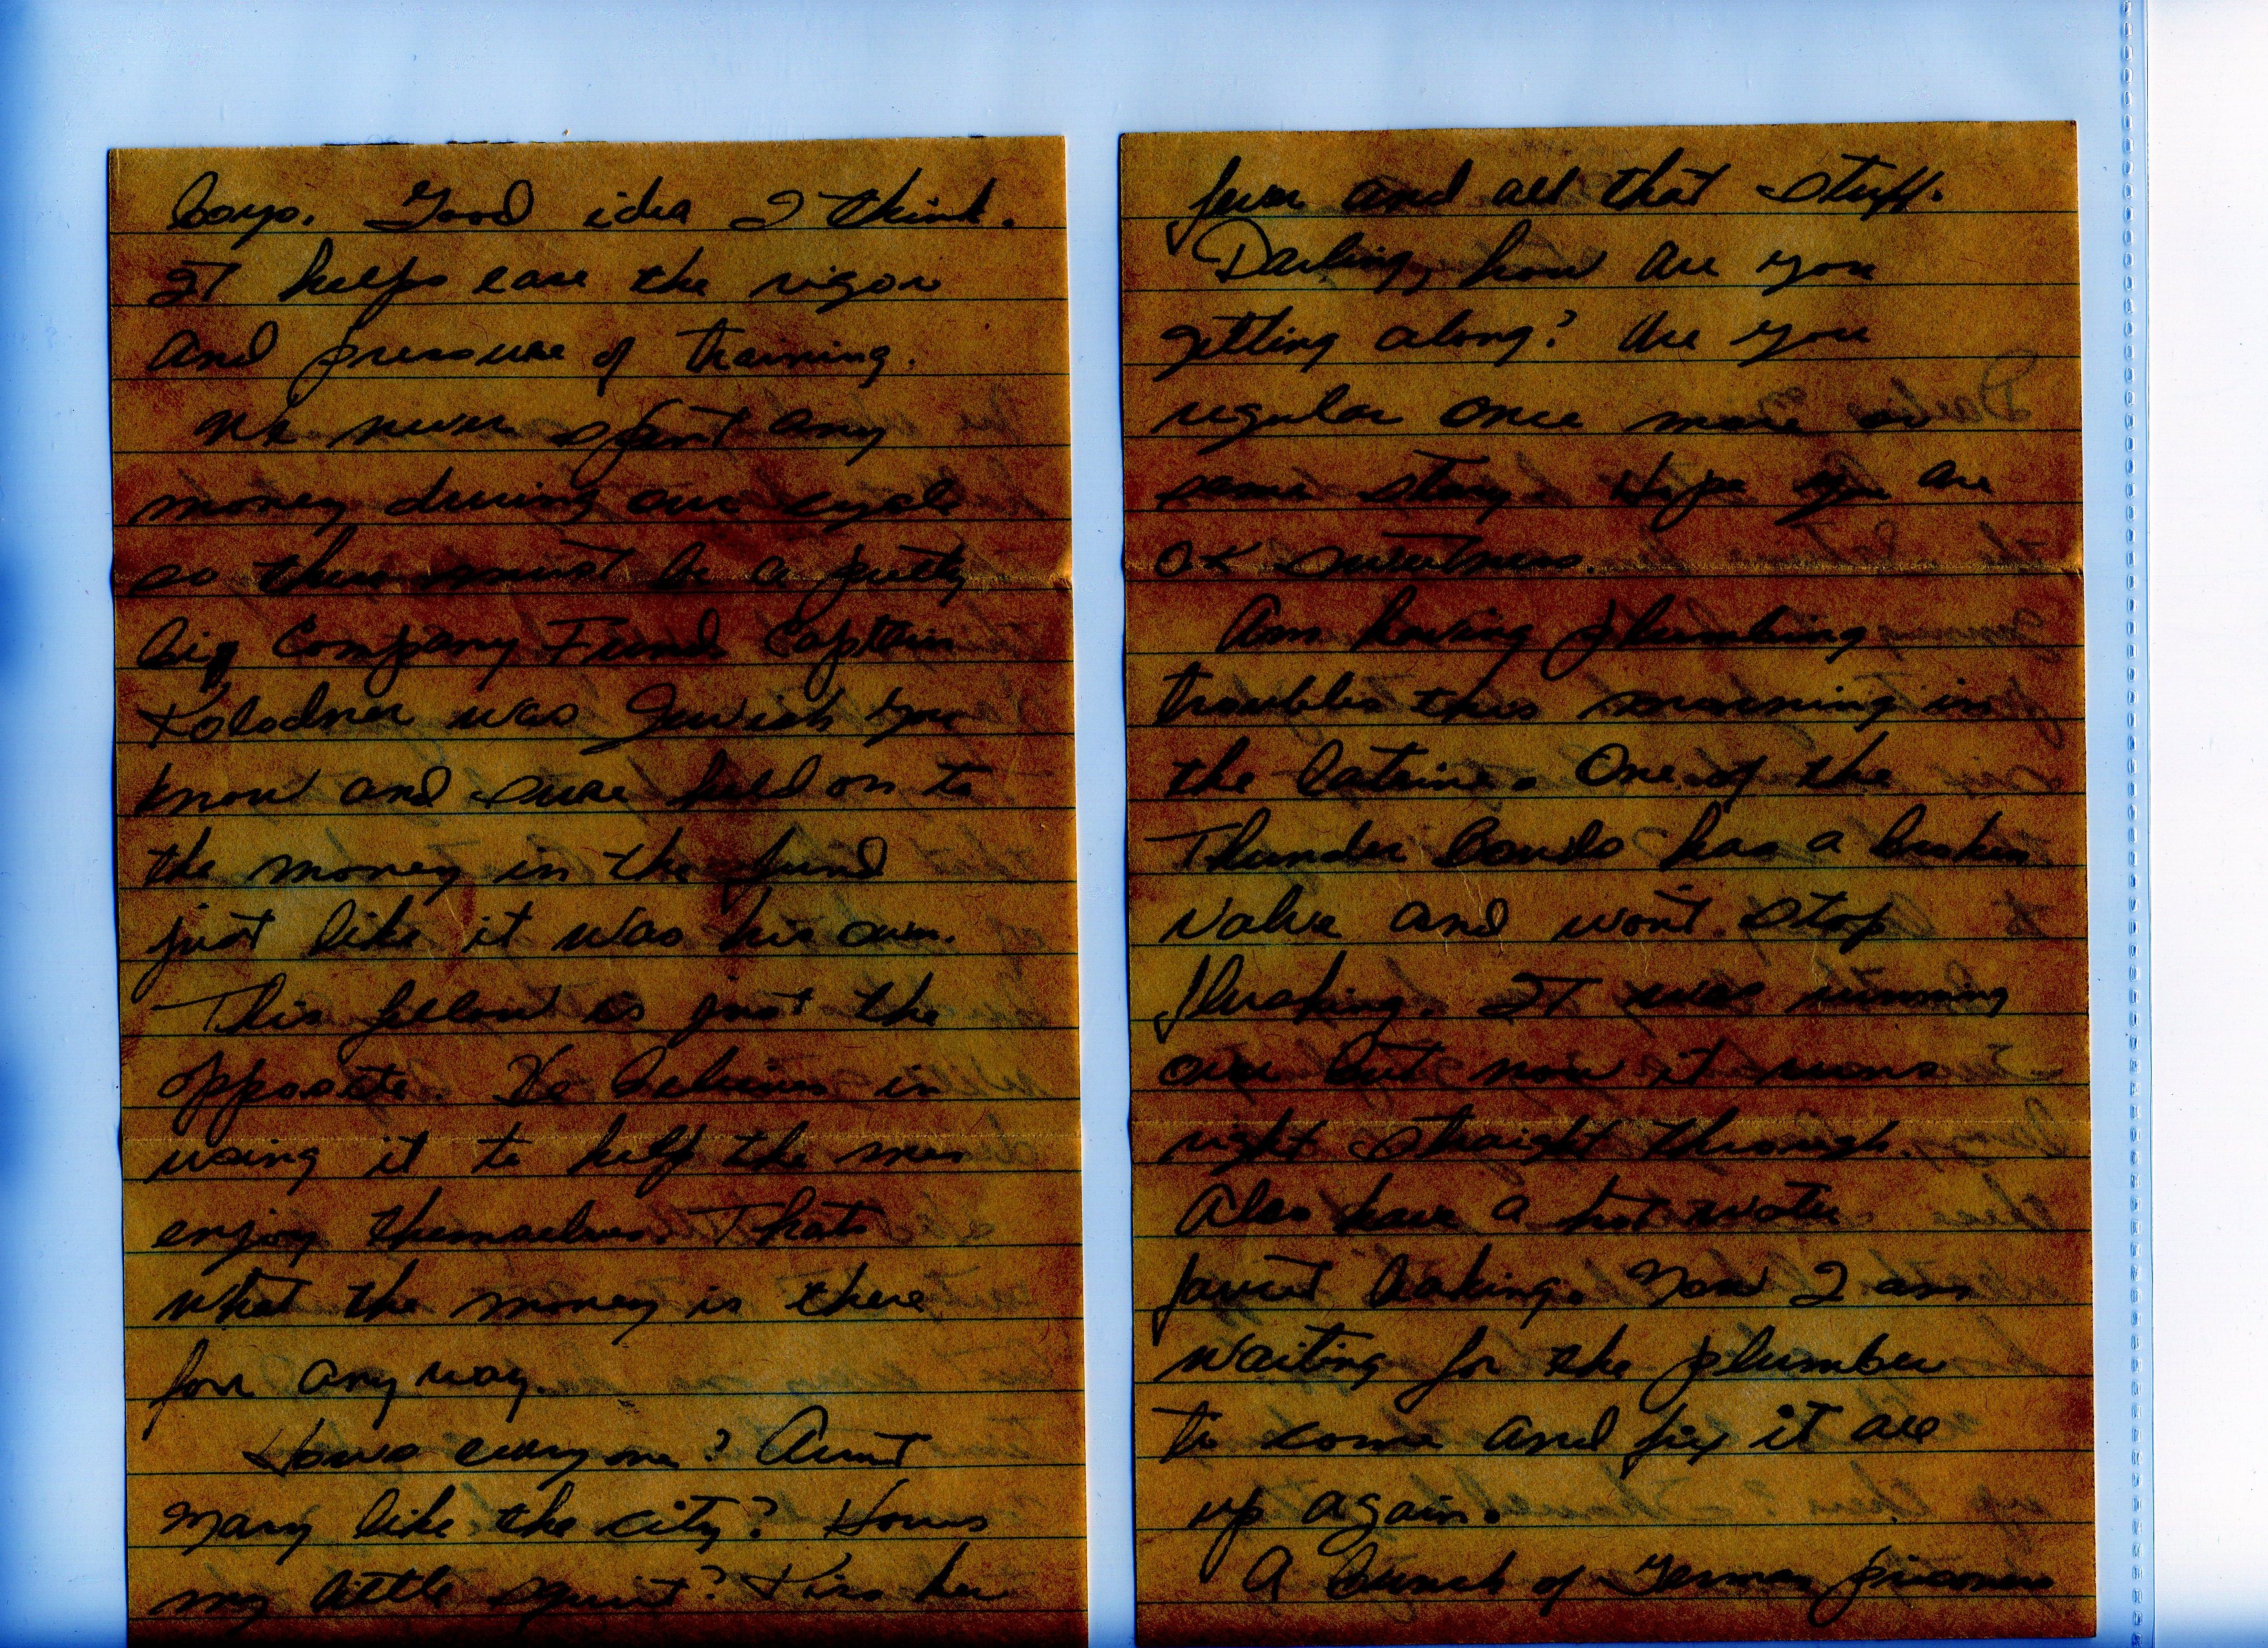 boys. Good idea I think.
It helps ease the rigor
and pressure of training.
We never spent any
money during our cycle
so there must be a pretty
big Company Fund. Captain
Kolodner was Jewish you
know and sure held on to
the money in the fund
just like it was his own.
This fellow is just the
opposite. He believes in
using it to help the men
enjoy themselves. Thats
what the money is there
for any way.
Hows everyone? Aunt
Mary like the city? Hows
my little squirt? Kiss her
fever and all that stuff.
Darling, how are you
getting along? Are you
regular once more or
same story. Hope you are
OK sweetness.
Am having plumbing
troubles this morning in
the latrine. One of the
Thunder bowls has a broken
valve and won't stop
flushing. It was running
over but now it runs
right straight through.
Also have a hot water
faucet leaking. Now I am
waiting for the plumber
to come and fix it all
up again.
A bunch of German prisoners